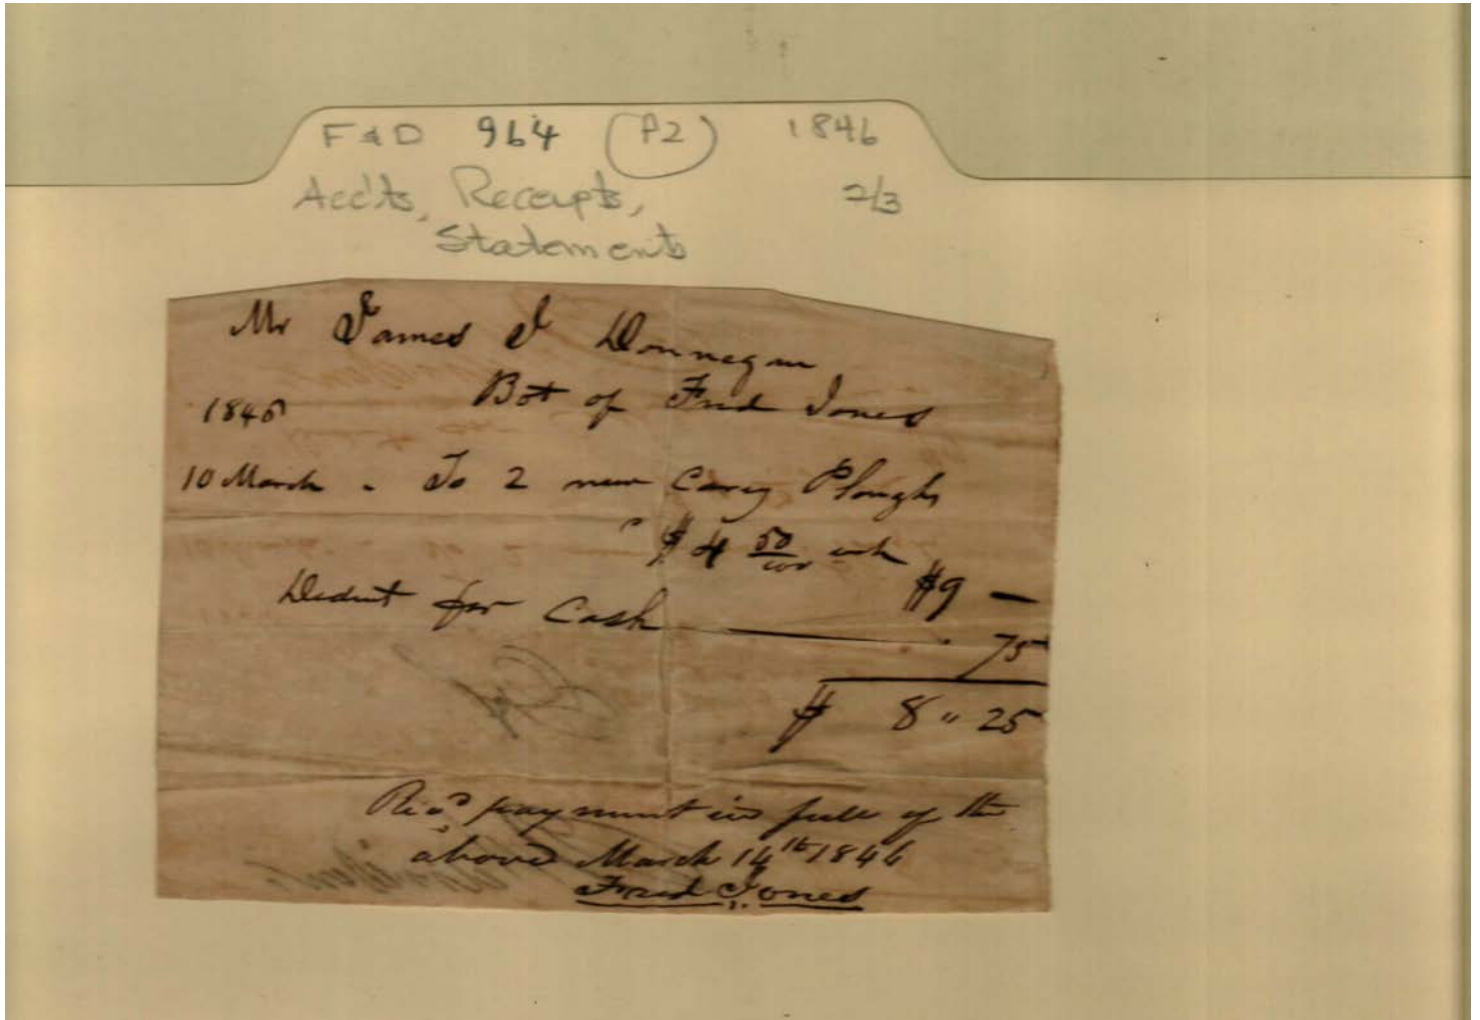 F & D 964 (P2) 1846
Acc'ts, Receipts, 2/3
Statements
Mr James J Donnegan
1846 Bot of Fred Jones
10 March - To 2 new Carey Ploughs
" $4 50/100 each $9 —
Deduct for Cash 75
$ 8 " 25
Rec'd payment in full of the
above March 14th 1846
Fred Jones